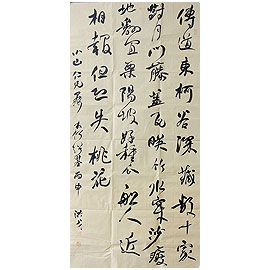 傳道東柯谷深藏數十家
對門藤蓋瓦映竹水穿沙瘦
地翻宜粟陽坡好種瓜船人近
相報但恐失桃花
小山仁兄 丙申